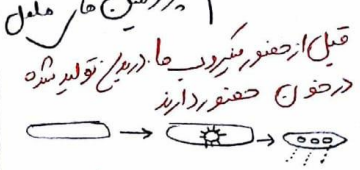 پروتئین های محلول
قبل از حضور میکروب ها در بدن تولید شده
در خون حضور دارند